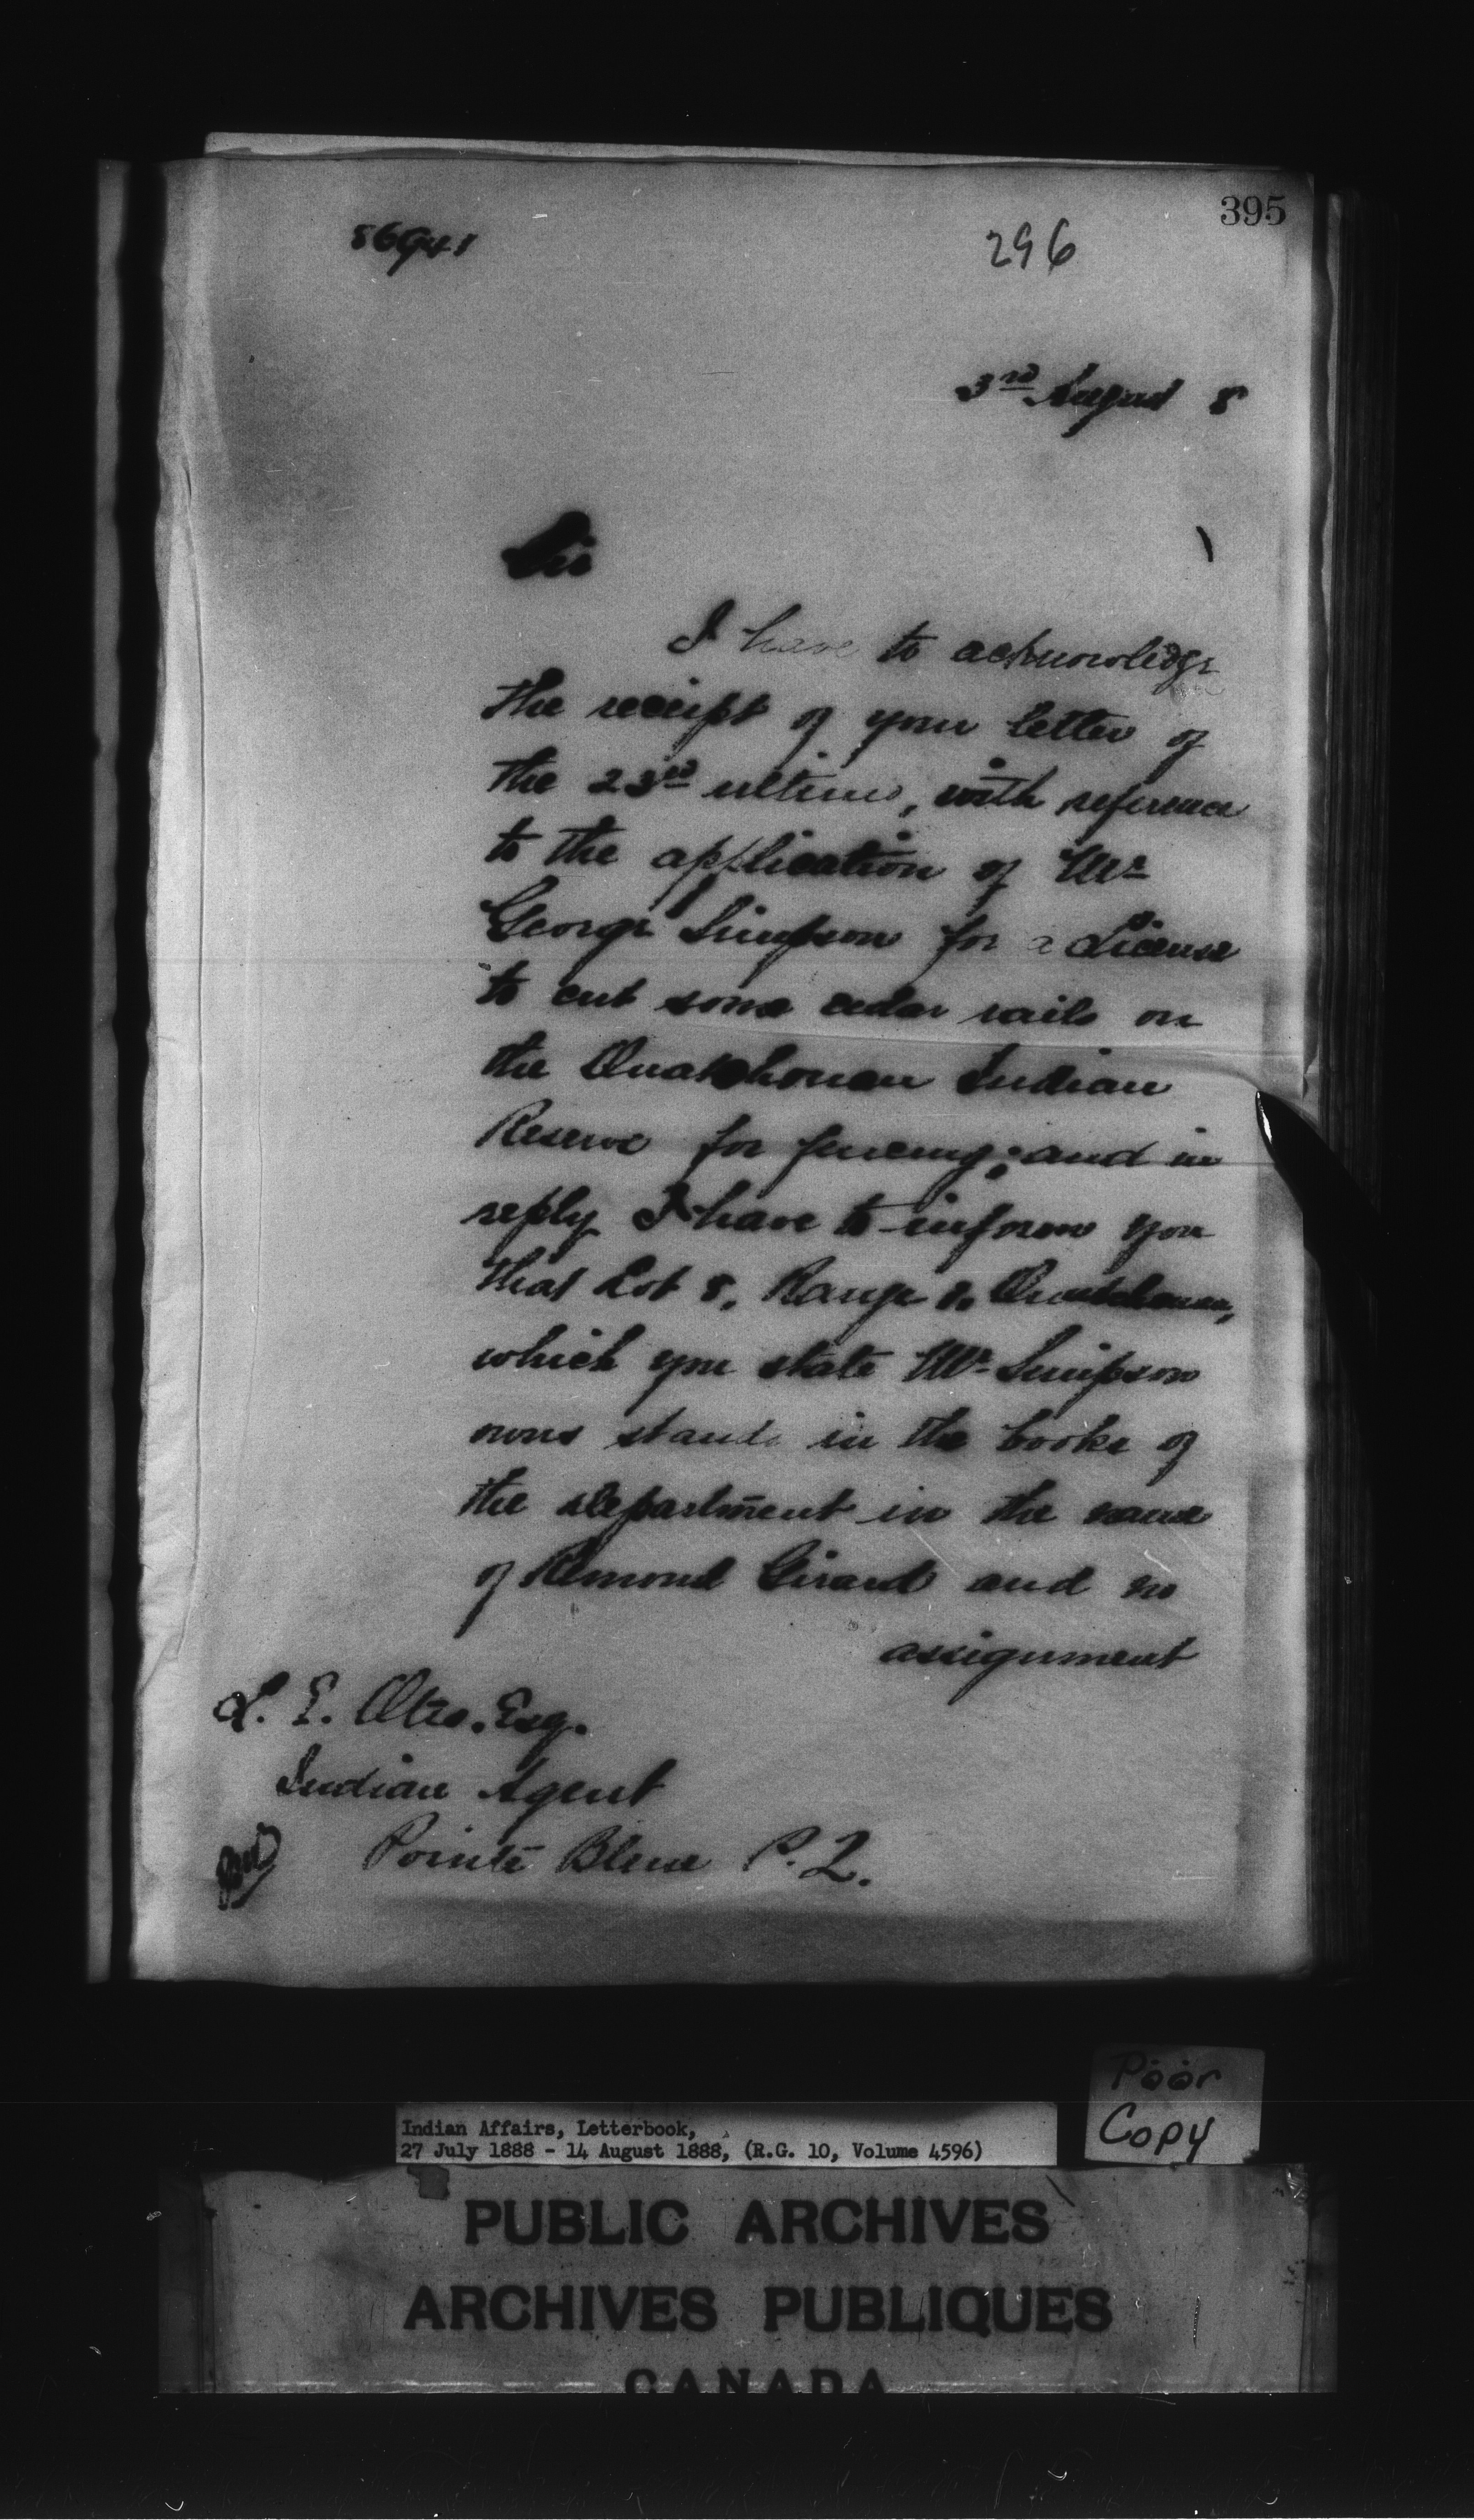 395
296
3rd August 8
Sir
I have to acknowledge
the receipt of your letter of
the 23rd ultimo, with reference
to the application of Mr
George Simpson for a License
to cut some cedar rails on
the Ouatchouan Indian
Reserve for fencing; and in
reply I have to inform you
that Lot 8, Range Ouiatchouan,
which you state Mr Simpson
owns stands in the books of
the department in the name
of Girard and no
assignment
L. E. Otis. Esq.
Indian Agent
Pointe Bleue P.Q.
Poor
Copy
Indian Affairs, Letterbook,
27 July 1888 - 14 August 1888, (R.G. 10, Volume 4596)
PUBLIC ARCHIVES
ARCHIVES PUBLIQUES
CANADA